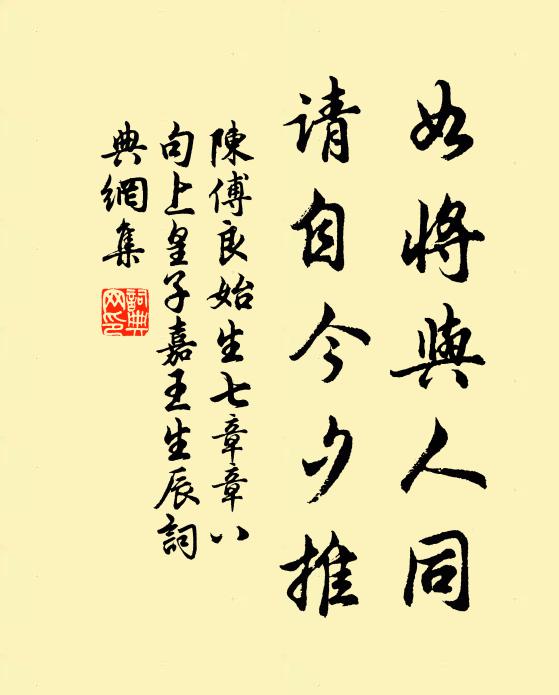 如将與人同
请自今夕推
陳傅良始生七章章八
句上皇子嘉王生辰詞
典網集
詞典
网印